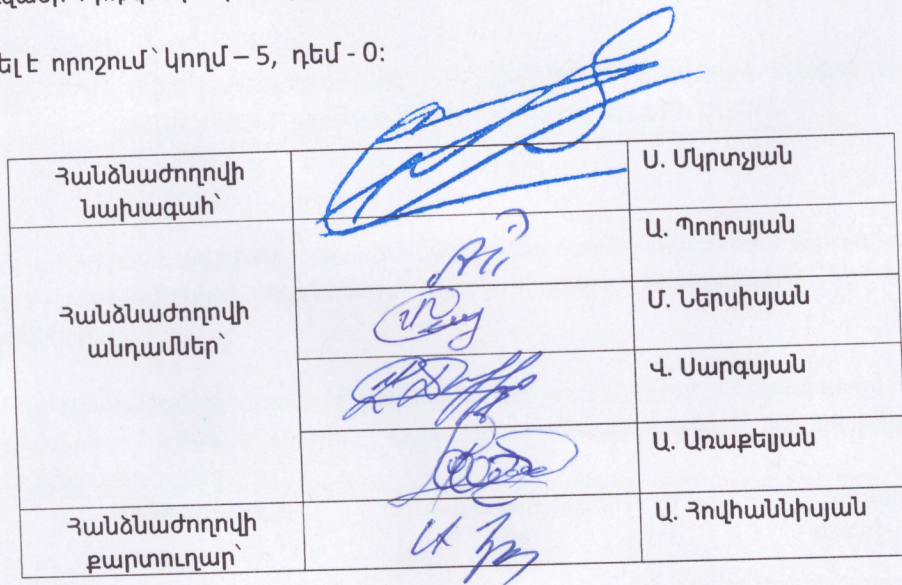 ել է որոշում՝ կողմ – 5, դեմ - 0:
Հանձնաժողովի
նախագահ՝
Ս. Մկրտչյան
Հանձնաժողովի
անդամներ՝
Ա. Պողոսյան
Մ. Ներսիսյան
Վ. Սարգսյան
Ա. Առաքելյան
Հանձնաժողովի
քարտուղար՝
Ա. Հովհաննիսյան